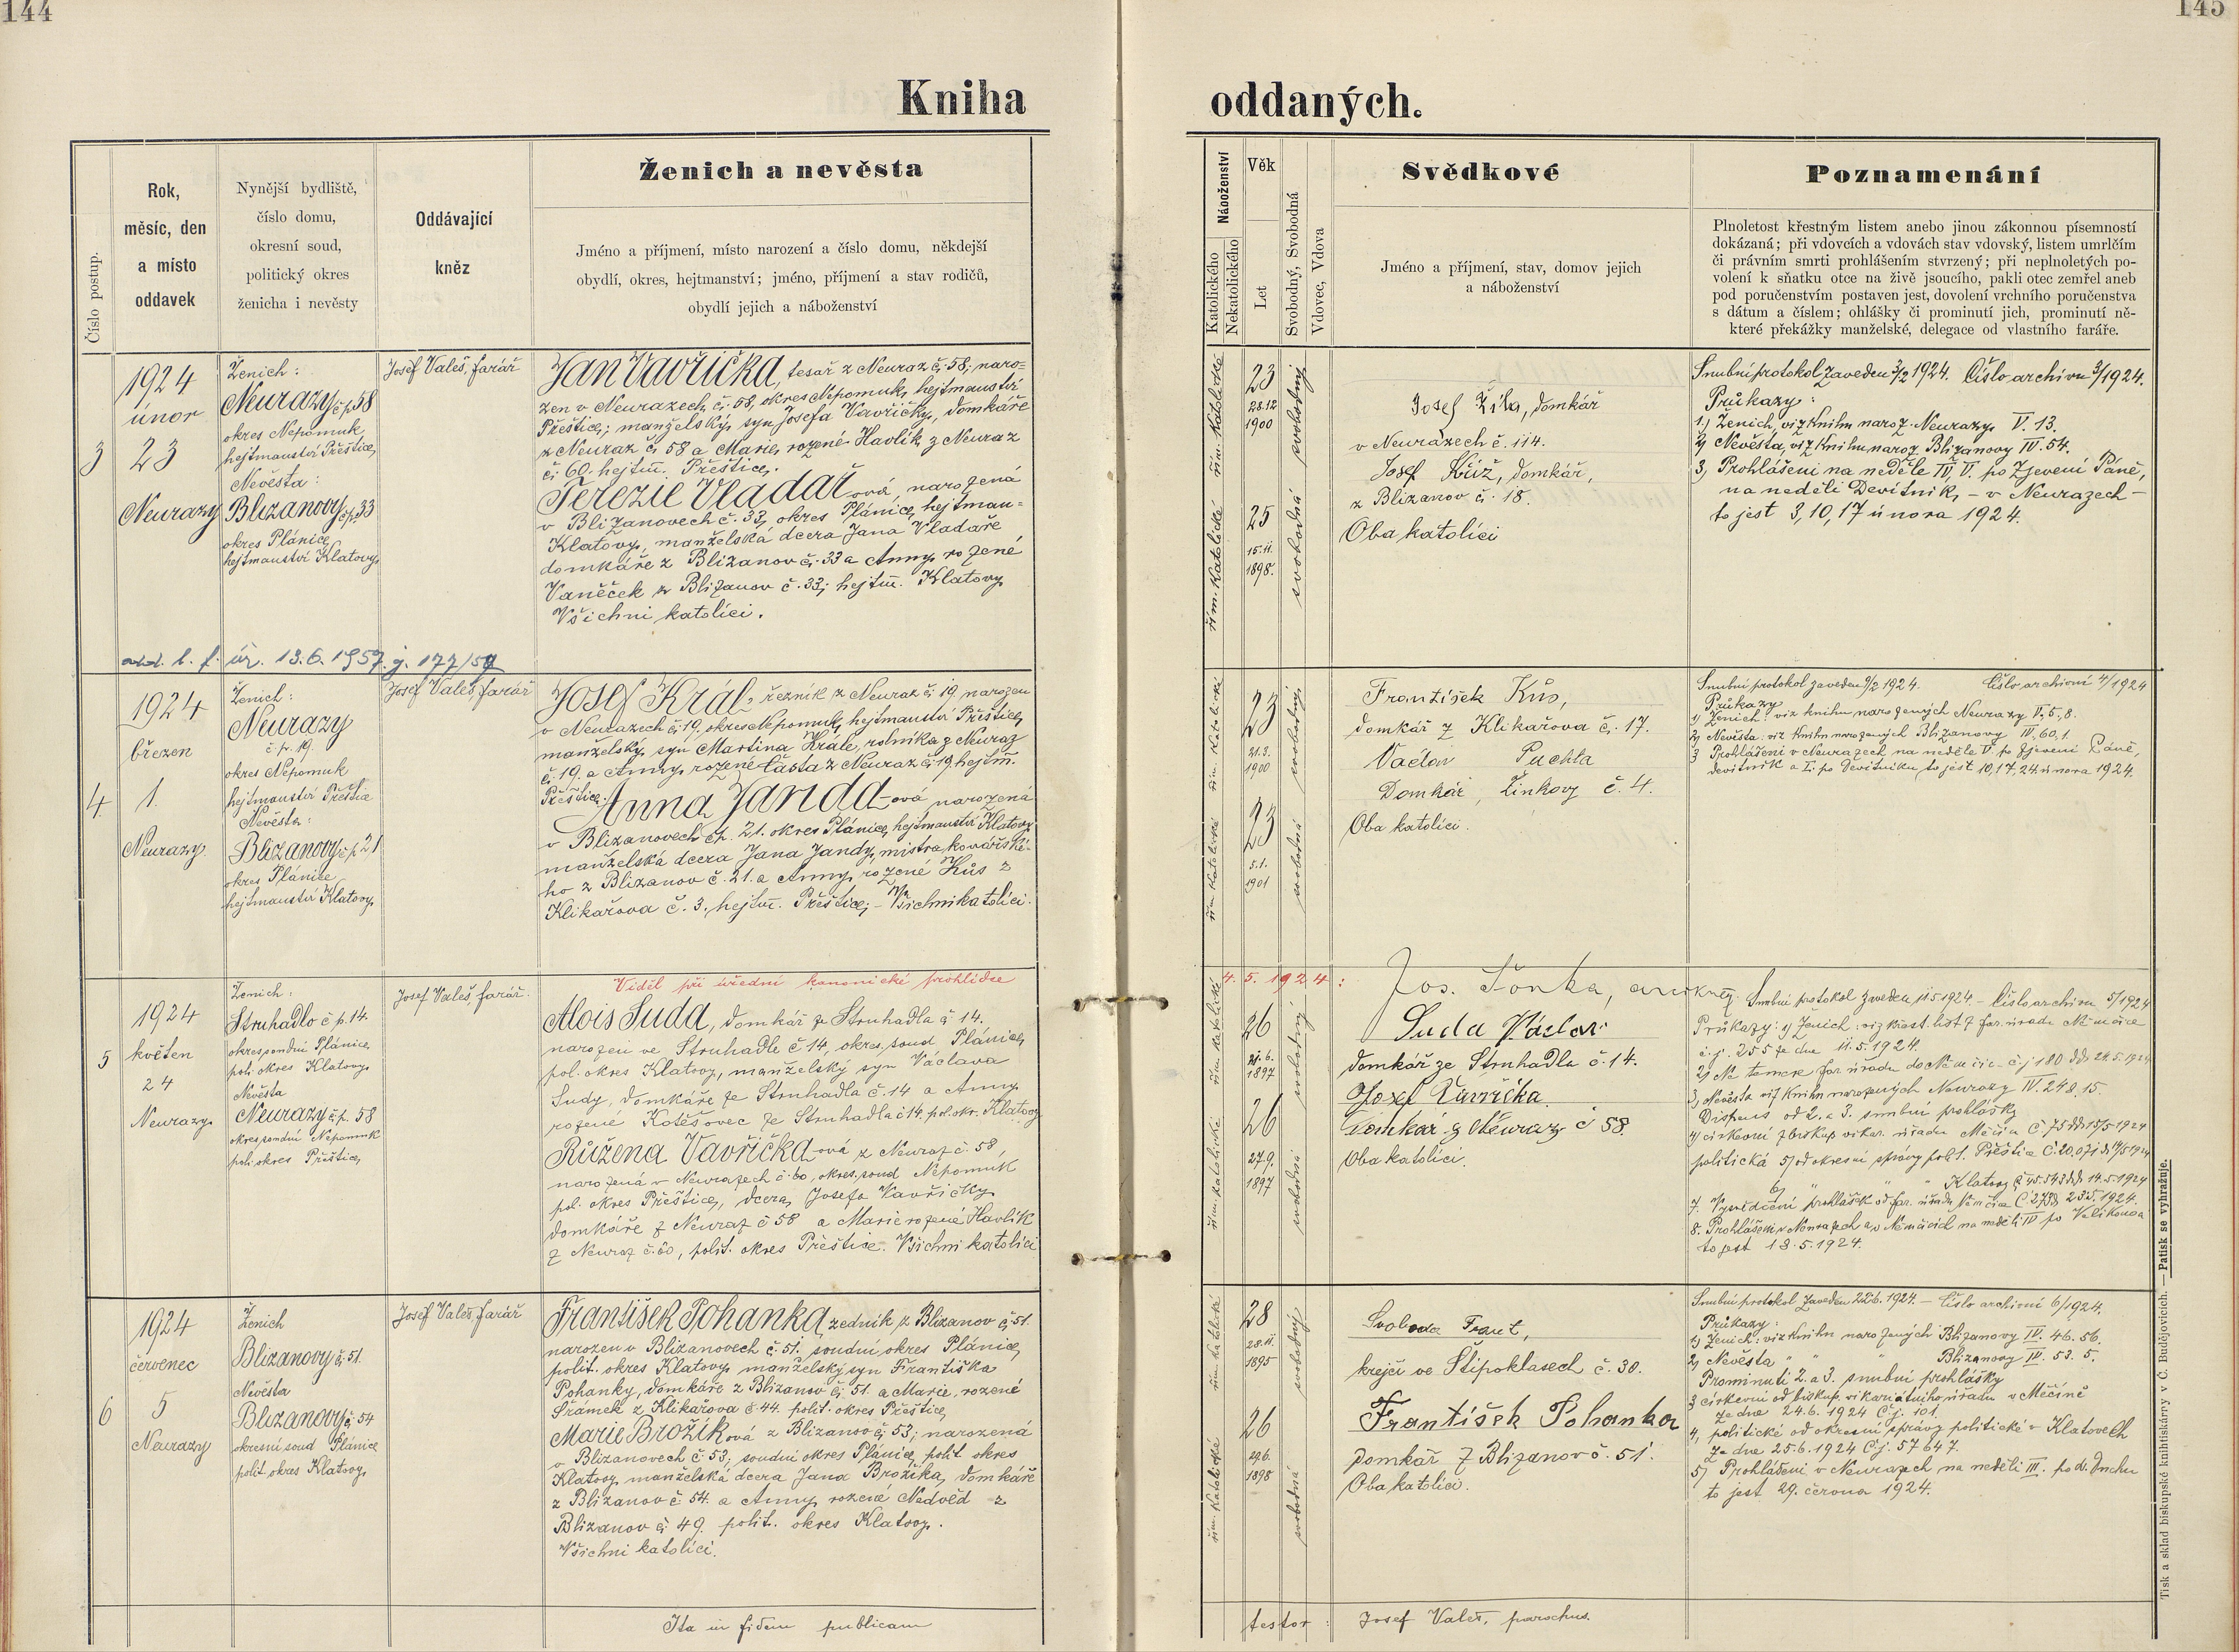 144
145
Kniha
oddaných.
Číslo postup.
Rok,
měsíc, den
a místo
oddavek
Nynější bydliště,
číslo domu,
okresní soud,
politický okres
ženicha i nevěsty
Oddávající
kněz
Ženich a nevěsta
Jméno a příjmení, místo narození a číslo domu, někdejší
obydlí, okres, hejtmanství; jméno, příjmení a stav rodičů,
obydlí jejich a náboženství
Náboženství
Katolického
Nekatolického
Věk
Let
Svobodný, Svobodná
Vdovec, Vdova
Svědkové
Jméno a příjmení, stav, domov jejich
a náboženství
Poznamenání
Plnoletost křestným listem anebo jinou zákonnou písemností
dokázaná; při vdovcích a vdovách stav vdovský, listem umrlčím
či právním smrti prohlášením stvrzený; při neplnoletých po-
volení k sňatku otce na živě jsoucího, pakli otec zemřel aneb
pod poručenstvím postaven jest, dovolení vrchního poručenstva
s dátum a číslem; ohlášky či prominutí jich, prominutí ně-
které překážky manželské, delegace od vlastního faráře.
3
1924
únor
23
Neurazy
Ženich:
Neurazy čp 58
okres Nepomuk
hejtmanství Přeštice,
Nevěsta:
Blizanovy čp 33
okres Plánice
hejtmanství Klatovy,
Josef Valeš, farář
Jan Vavřička, tesař z Neuraz č. 58; naro-
zen v Neurazech č. 58, okres Nepomuk, hejtmanství
Přeštice; manželský syn Josefa Vavřičky, domkáře
z Neuraz č. 58 a Marie, rozené Havlík z Neuraz
č. 60. hejtm. Přeštice.
Terezie Vladařová, narozená
v Blizanovech č. 33, okres Plánice, hejtman-
Klatovy, manželská dcera Jana Vladaře
domkáře z Blizanov č. 33 a Anny rozené
Vaněček z Blizanov č. 33; hejtm. Klatovy
Všichni katolíci.
řím. katolické
řím. katolické
23
28.12
1900
25
15.11.
1898.
svobodný
svobodná
Josef Žíla, domkář
v Neurazech č. 114.
Josef Kříž, domkář,
z Blizanov č. 18.
Oba katolíci
Snubní protokol zaveden 3/2 1924. Číslo archivu 3/1924.
Průkazy:
1.) Ženich, viz knihu naroz. Neurazy V. 13.
2) Nevěsta, viz knihu naroz. Blizanovy IV. 54.
3, Prohlášení na neděle IV, V. po Zjevení Páně,
na neděli Devítník, – v Neurazech –
to jest 3, 10, 17 února 1924.
odd. l. f. úř. 13.6.1957. j. 177/57
4
1924
březen
1.
Neurazy.
Ženich:
Neurazy
č p. 19.
okres Nepomuk
hejtmanství Přeštice
Nevěsta:
Blizanovy č p 21
okres Plánice
hejtmanství Klatovy,
Josef Valeš, farář
Josef Král, řezník z Neuraz č. 19. narozen
v Neurazech č. 19, okres Nepomuk, hejtmanství Přeštice,
manželský syn Martina Krále, rolníka z Neuraz
č. 19. a Anny, rozené Částa z Neuraz č. 19, hejtm.
Přeštice. Anna Jandd-ová narozená
v Blizanovech čp. 21. okres Plánice, hejtmanství Klatovy
manželská dcera Jana Jandy, mistra kovářské-
ho z Blizanov č. 21. a Anny, rozené Kůs z
Klikařova č. 3. hejtm. Přeštice; – Všichni katolíci.
řím. katolické
řím. katolické
23
21.3.
1900
23
5.1.
1901
svobodný
svobodná
František Kůs,
domkář z Klikařova č. 17.
Václav Puchta
Domkář, Žinkovy č. 4.
Oba katolíci.
Snubní protokol zaveden 9/2 1924. Číslo archivní 4/1924
Průkazy
1) Ženich: viz knihu narozených Neurazy V, 5, 8.
2) Nevěsta: viz knihu narozených Blizanovy IV, 60, 1.
3 Prohlášení v Neurazech na neděle V. po Zjevení Páně,
devítník a I. po Devítníku, to jest 10, 17, 24. února 1924.
Viděl při úřední kanonické prohlídce
4. 5. 1924:
Jos. Šonka,
5
1924
květen
24
Neurazy.
Ženich:
Struhadlo č p. 14.
okres. soudní Plánice,
pol. okres Klatovy.
Nevěsta
Neurazy č. p. 58
okres soudní Nepomuk
pol. okres Přeštice,
Josef Valeš, farář.
Alois Suda, domkář ze Struhadla č. 14.
narozen ve Struhadle č 14, okres. soud Plánice,
pol. okres Klatovy, manželský syn Václava
Sudy, domkáře ze Struhadla č. 14 a Anny,
rozené Kotěšovec ze Struhadla č 14. pol. okr. Klatovy
Růžena Vavřičkd-ová z Neuraz č. 58,
narozená v Neurazech č. 60, okres. soud Nepomuk
pol. okres Přeštice, dcera Josefa Vavřičky
domkáře z Neuraz č 58 a Marie rozené Havlík
z Neuraz č. 60, polit. okres Přeštice. Všichni katolíci
řím. katolické
řím. katolické
26
21.6.
1897
26
27.9.
1897
svobodný
svobodná
Suda Václav
domkář ze Struhadla č. 14.
Josef Vavřička
Domkář z Neuraz č 58
Oba katolíci.
Snubní protokol zaveden 11.5.1924. – Číslo archivu 5/1924
Průkazy: 1) Ženich: viz křest. list z far. úřadu Němčice
č. j. 255 ze dne 11.5.1924.
3, Nevěsta viz knihu narozených Neurazy IV. 248, 15.
Dispens od 2. a 3. snubní prohlášky
8. Prohlášení v Neurazech a v Němčicích na neděli IV po Velikonoci
to jest 18.5.1924.
6
1924
červenec
5
Neurazy
Ženich
Blizanovy č. 51.
Nevěsta
Blizanovy č. 54
okresní soud Plánice
polit. okres Klatovy,
Josef Valeš, farář
František Pohanka, zedník z Blizanov č. 51.
narozen v Blizanovech č. 51. soudní okres Plánice,
polit. okres Klatovy, manželský syn Františka
Pohanky, domkáře z Blizanov č. 51. a Marie, rozené
Šrámek z Klikařova č. 44. polit. okres Přeštice,
Marie Brožíková z Blizanov č. 53; narozená
v Blizanovech č 53, soudní okres Plánice, polit okres
Klatovy, manželská dcera Jana Brožíka, domkáře
z Blizanov č. 54. a Anny, rozené Nedvěd z
Blizanov č. 49. polit. okres Klatovy.
Všichni katolíci.
řím. katolické
řím. katolické
28
28.11.
1895
26
29.6.
1898
svobodný
svobodná
Svoboda Frant,
krejčí ve Štipoklasech č. 30.
František Pohanka
Domkář z Blizanov č. 51.
Oba katolíci.
Snubní protokol zaveden 22.6.1924. – Číslo archivní 6/1924.
Průkazy:
1) Ženich: viz knihu narozených Blizanovy IV. 46. 56.
2) Nevěsta " " " Blizanovy IV. 53. 5.
Prominutí 2. a 3. snubní prohlášky
3 církevní od biskup. vikariátního úřadu v Měčíně
ze dne 24.6.1924 Č. j. 101.
4, politické od okresní správy politické v Klatovech
ze dne 25.6.1924 Č. j. 57647.
5) Prohlášení v Neurazech na neděli III. po d. Duchu
to jest 29. června 1924.
Ita in fidem publicam
testor: Josef Valeš, parochus.
Tisk a sklad biskupské knihtiskárny v Č. Budějovicích. — Patisk se vyhražuje.